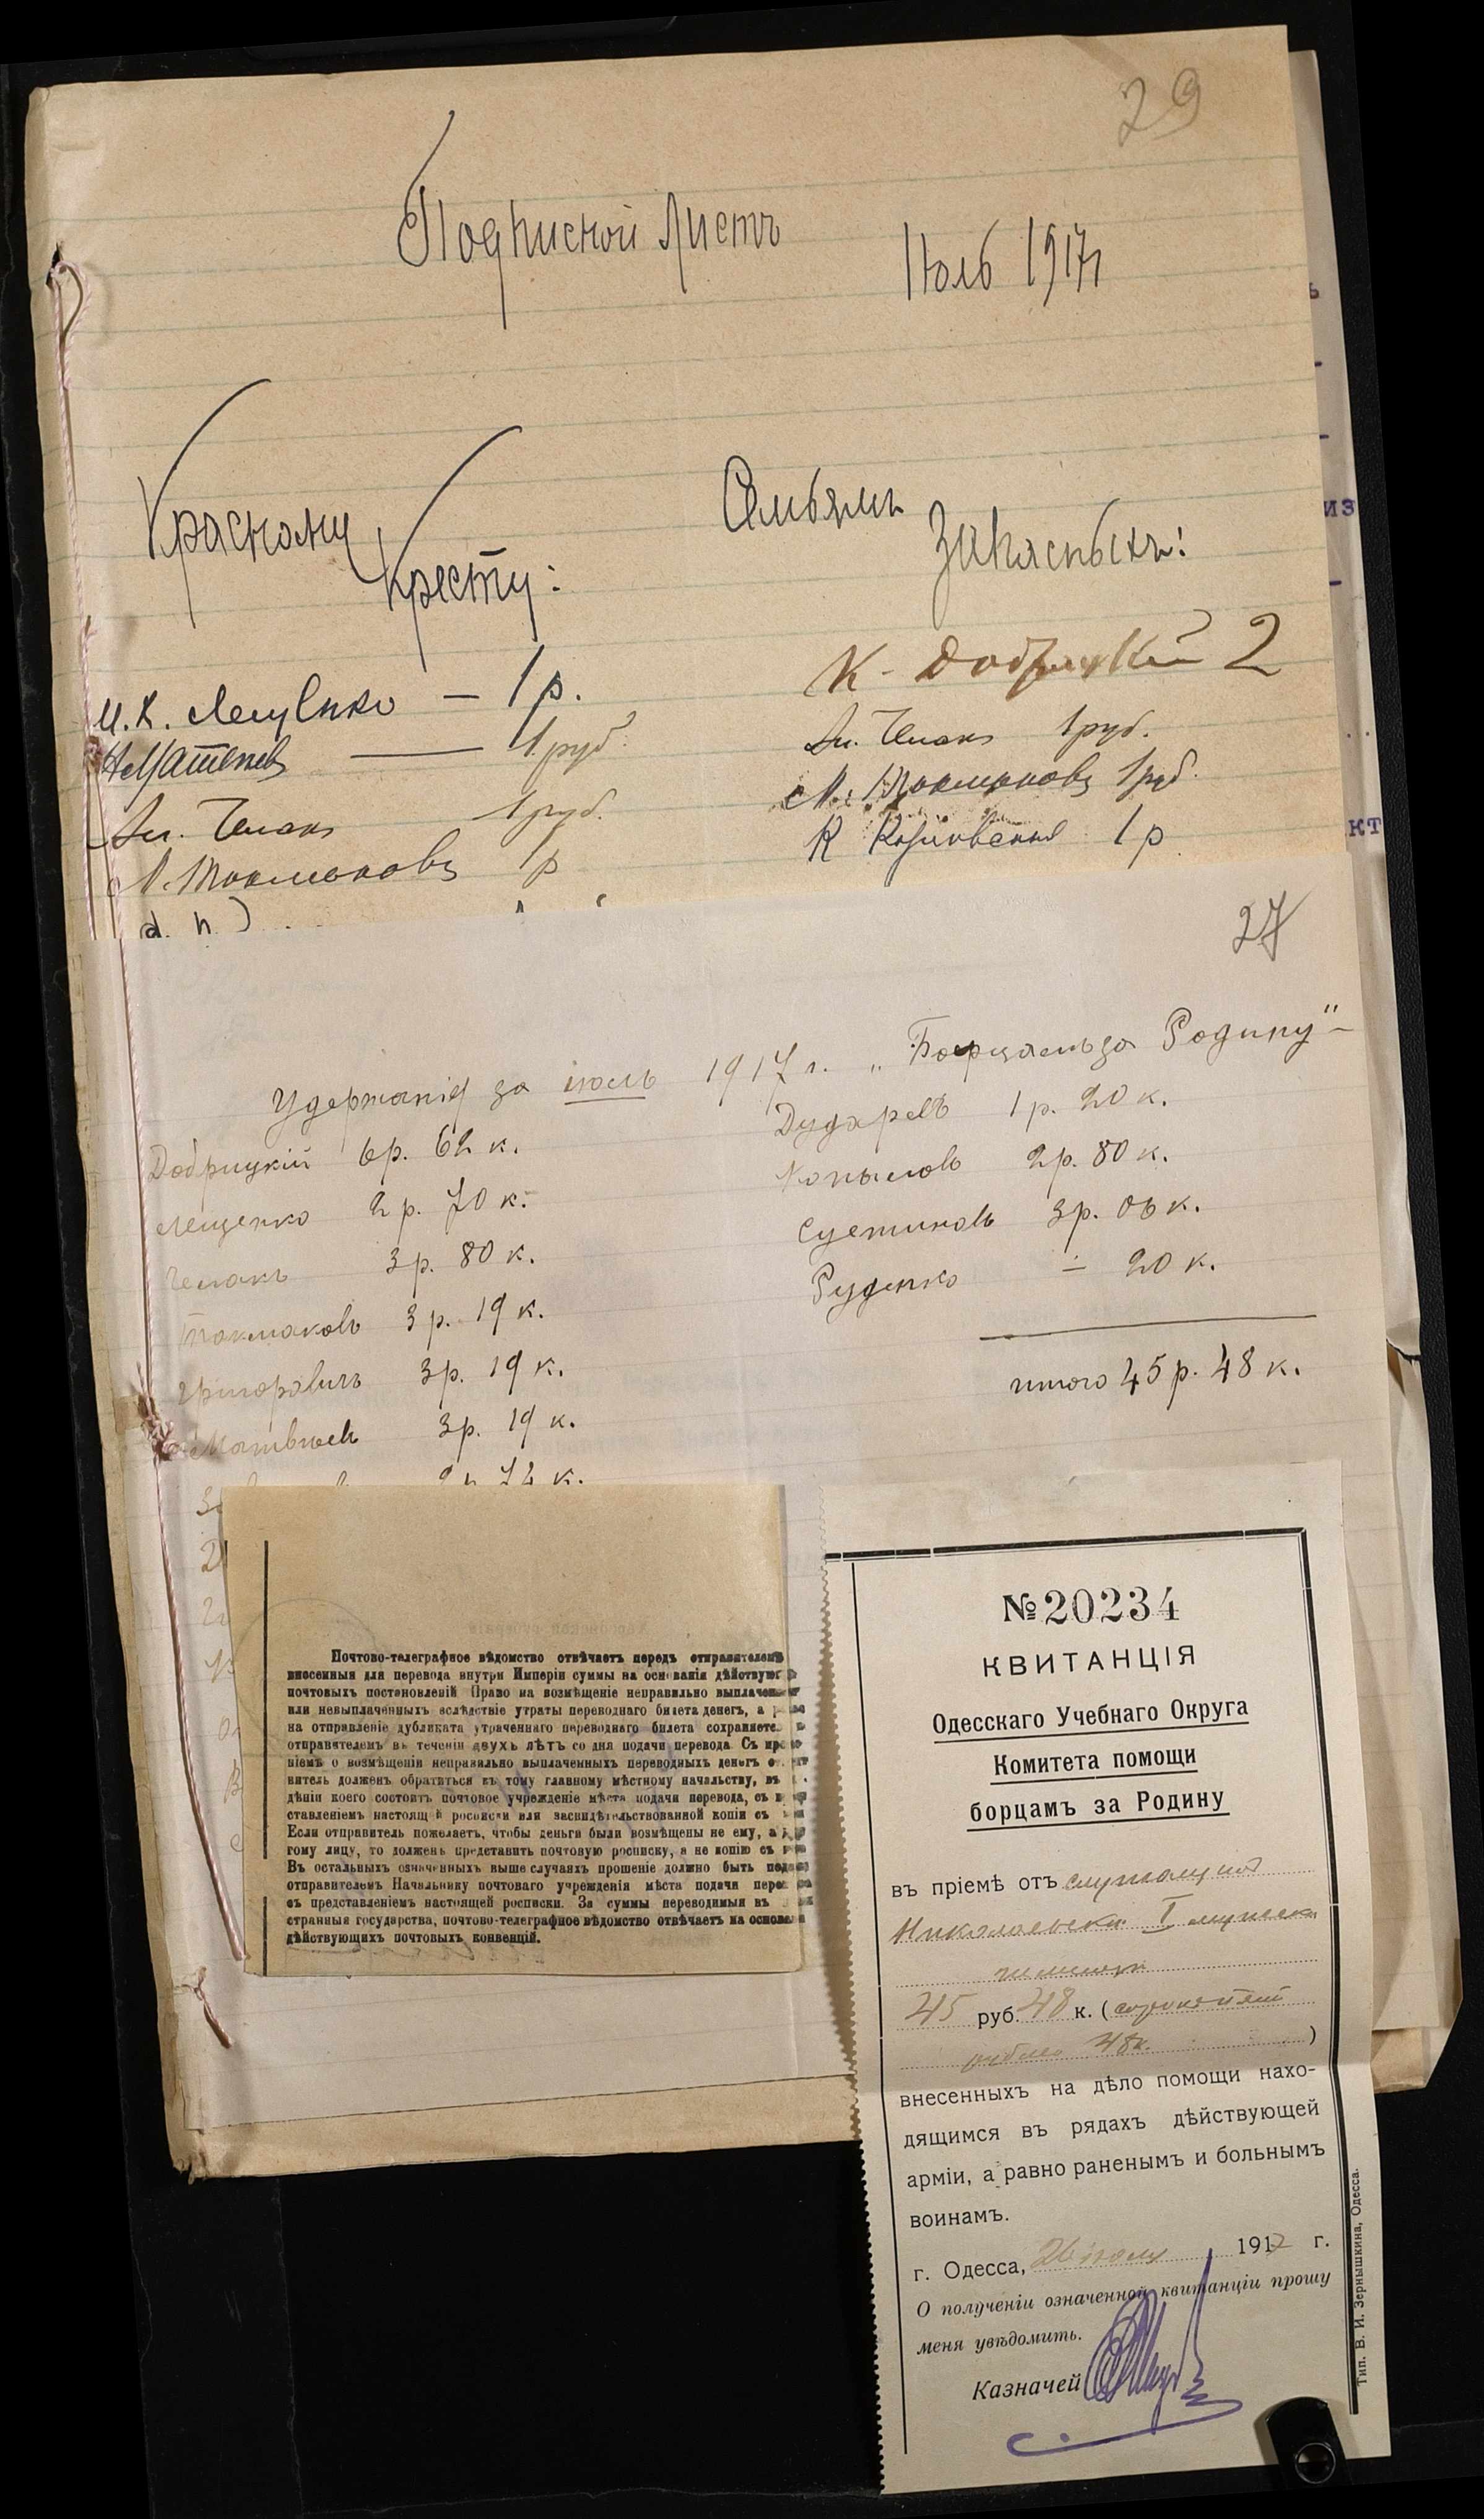 29
Подписной Листъ
Июль 1917 г
Красному
Кресту:
И. К. Лещенко — 1 р.
1 руб.
Ал. Чемакъ 1 руб.
Токмаковъ 1 р
Семьямъ
Запасныхъ:
К. Добрицкій 2
Ал. Чемакъ 1 руб.
Токмаковъ 1 руб.
К 1 р
27
Удержанія за июль 1917 г. „Борцамъ за Родину"
Добрицкій 6 р. 62 к.
Лещенко 2 р. 70 к.
Чемакъ 3 р. 80 к.
Токмаковъ 3 р. 19 к.
Григоровичъ 3 р. 19 к.
Матвѣевъ 3 р. 19 к.
к.
Дударевъ 1 р. 20 к.
Копыловъ 2 р. 80 к.
Суетиновъ 3 р. 06 к.
Руденко — 20 к.
итого 45 р. 48 к.
Почтово-телеграфное вѣдомство отвѣчаетъ передъ отправителемъ
внесенныя для перевода внутри Имперіи суммы на основаніи дѣйствую
почтовыхъ постановленій Право на возмѣщеніе неправильно выплачен
или невыплаченныхъ вслѣдствіе утраты переводнаго билета денегъ, а
на отправленіе дубликата утраченнаго переводнаго билета сохраняетс
отправителемъ въ теченіи двухъ лѣтъ со дня подачи перевода. Съ
ніемъ о возмѣщеніи неправильно выплаченныхъ переводныхъ денегъ
витель долженъ обратиться къ тому главному мѣстному начальству, въ
дѣніи коего состоитъ почтовое учрежденіе мѣста подачи перевода, съ
ставленіемъ настоящей росписки или засвидѣтельствованной копіи съ
Если отправитель пожелаетъ, чтобы деньги были возмѣщены не ему, а
гому лицу, то долженъ представить почтовую росписку, а не копію съ
Въ остальныхъ означенныхъ выше случаяхъ прошеніе должно быть
отправителемъ Начальнику почтоваго учрежденія мѣста подачи
съ представленіемъ настоящей росписки. За суммы переводимыя въ
странныя государства, почтово-телеграфное вѣдомство отвѣчаетъ на основа
дѣйствующихъ почтовыхъ конвенцій.
№20234
КВИТАНЦІЯ
Одесскаго Учебнаго Округа
Комитета помощи
борцамъ за Родину
въ пріемѣ отъ служащихъ
Николаевской I
45 руб. 48 к. (сорокъ пять
рублей 48 к. )
внесенныхъ на дѣло помощи нахо-
дящимся въ рядахъ дѣйствующей
арміи, а равно раненымъ и больнымъ
воинамъ.
г. Одесса, 26 іюля 1917 г.
О полученіи означенной квитанціи прошу
меня увѣдомить.
Казначей
Тип. В. И. Зернышкина, Одесса.
из
кт